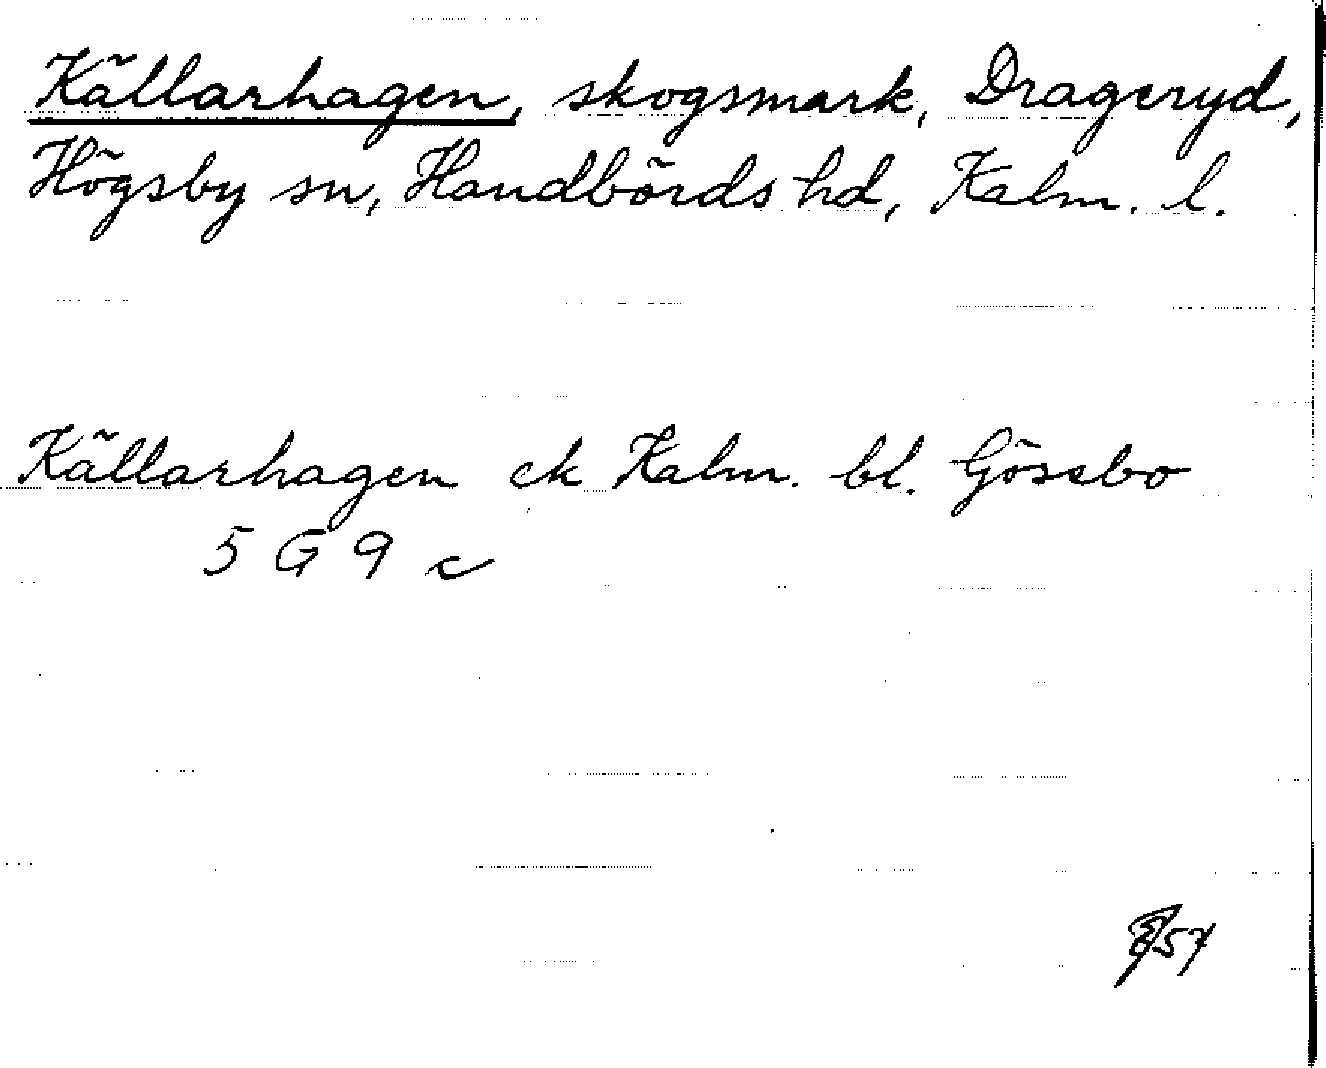 Källarhagen, skogsmark, Drageryd,
Högsby sn, Handbörds hd, Kalm. l.
Källarhagen ek Kalm. bl. Gössbo
5 G 9 c